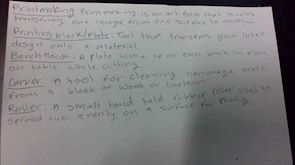 Printmaking: Printmaking is an art form that involves
transfering one image from one surface to another
Printing block/plate: Tool that transfers your inked
design onto a material
Bench Hook: A plate with a lip on each
on table while cutting.
Carver: A tool for cleaning nonimage areas
from a block or wood or linoleum
Roller: A small hand held rubber roller used to
spread ink evenly on a surface for printing